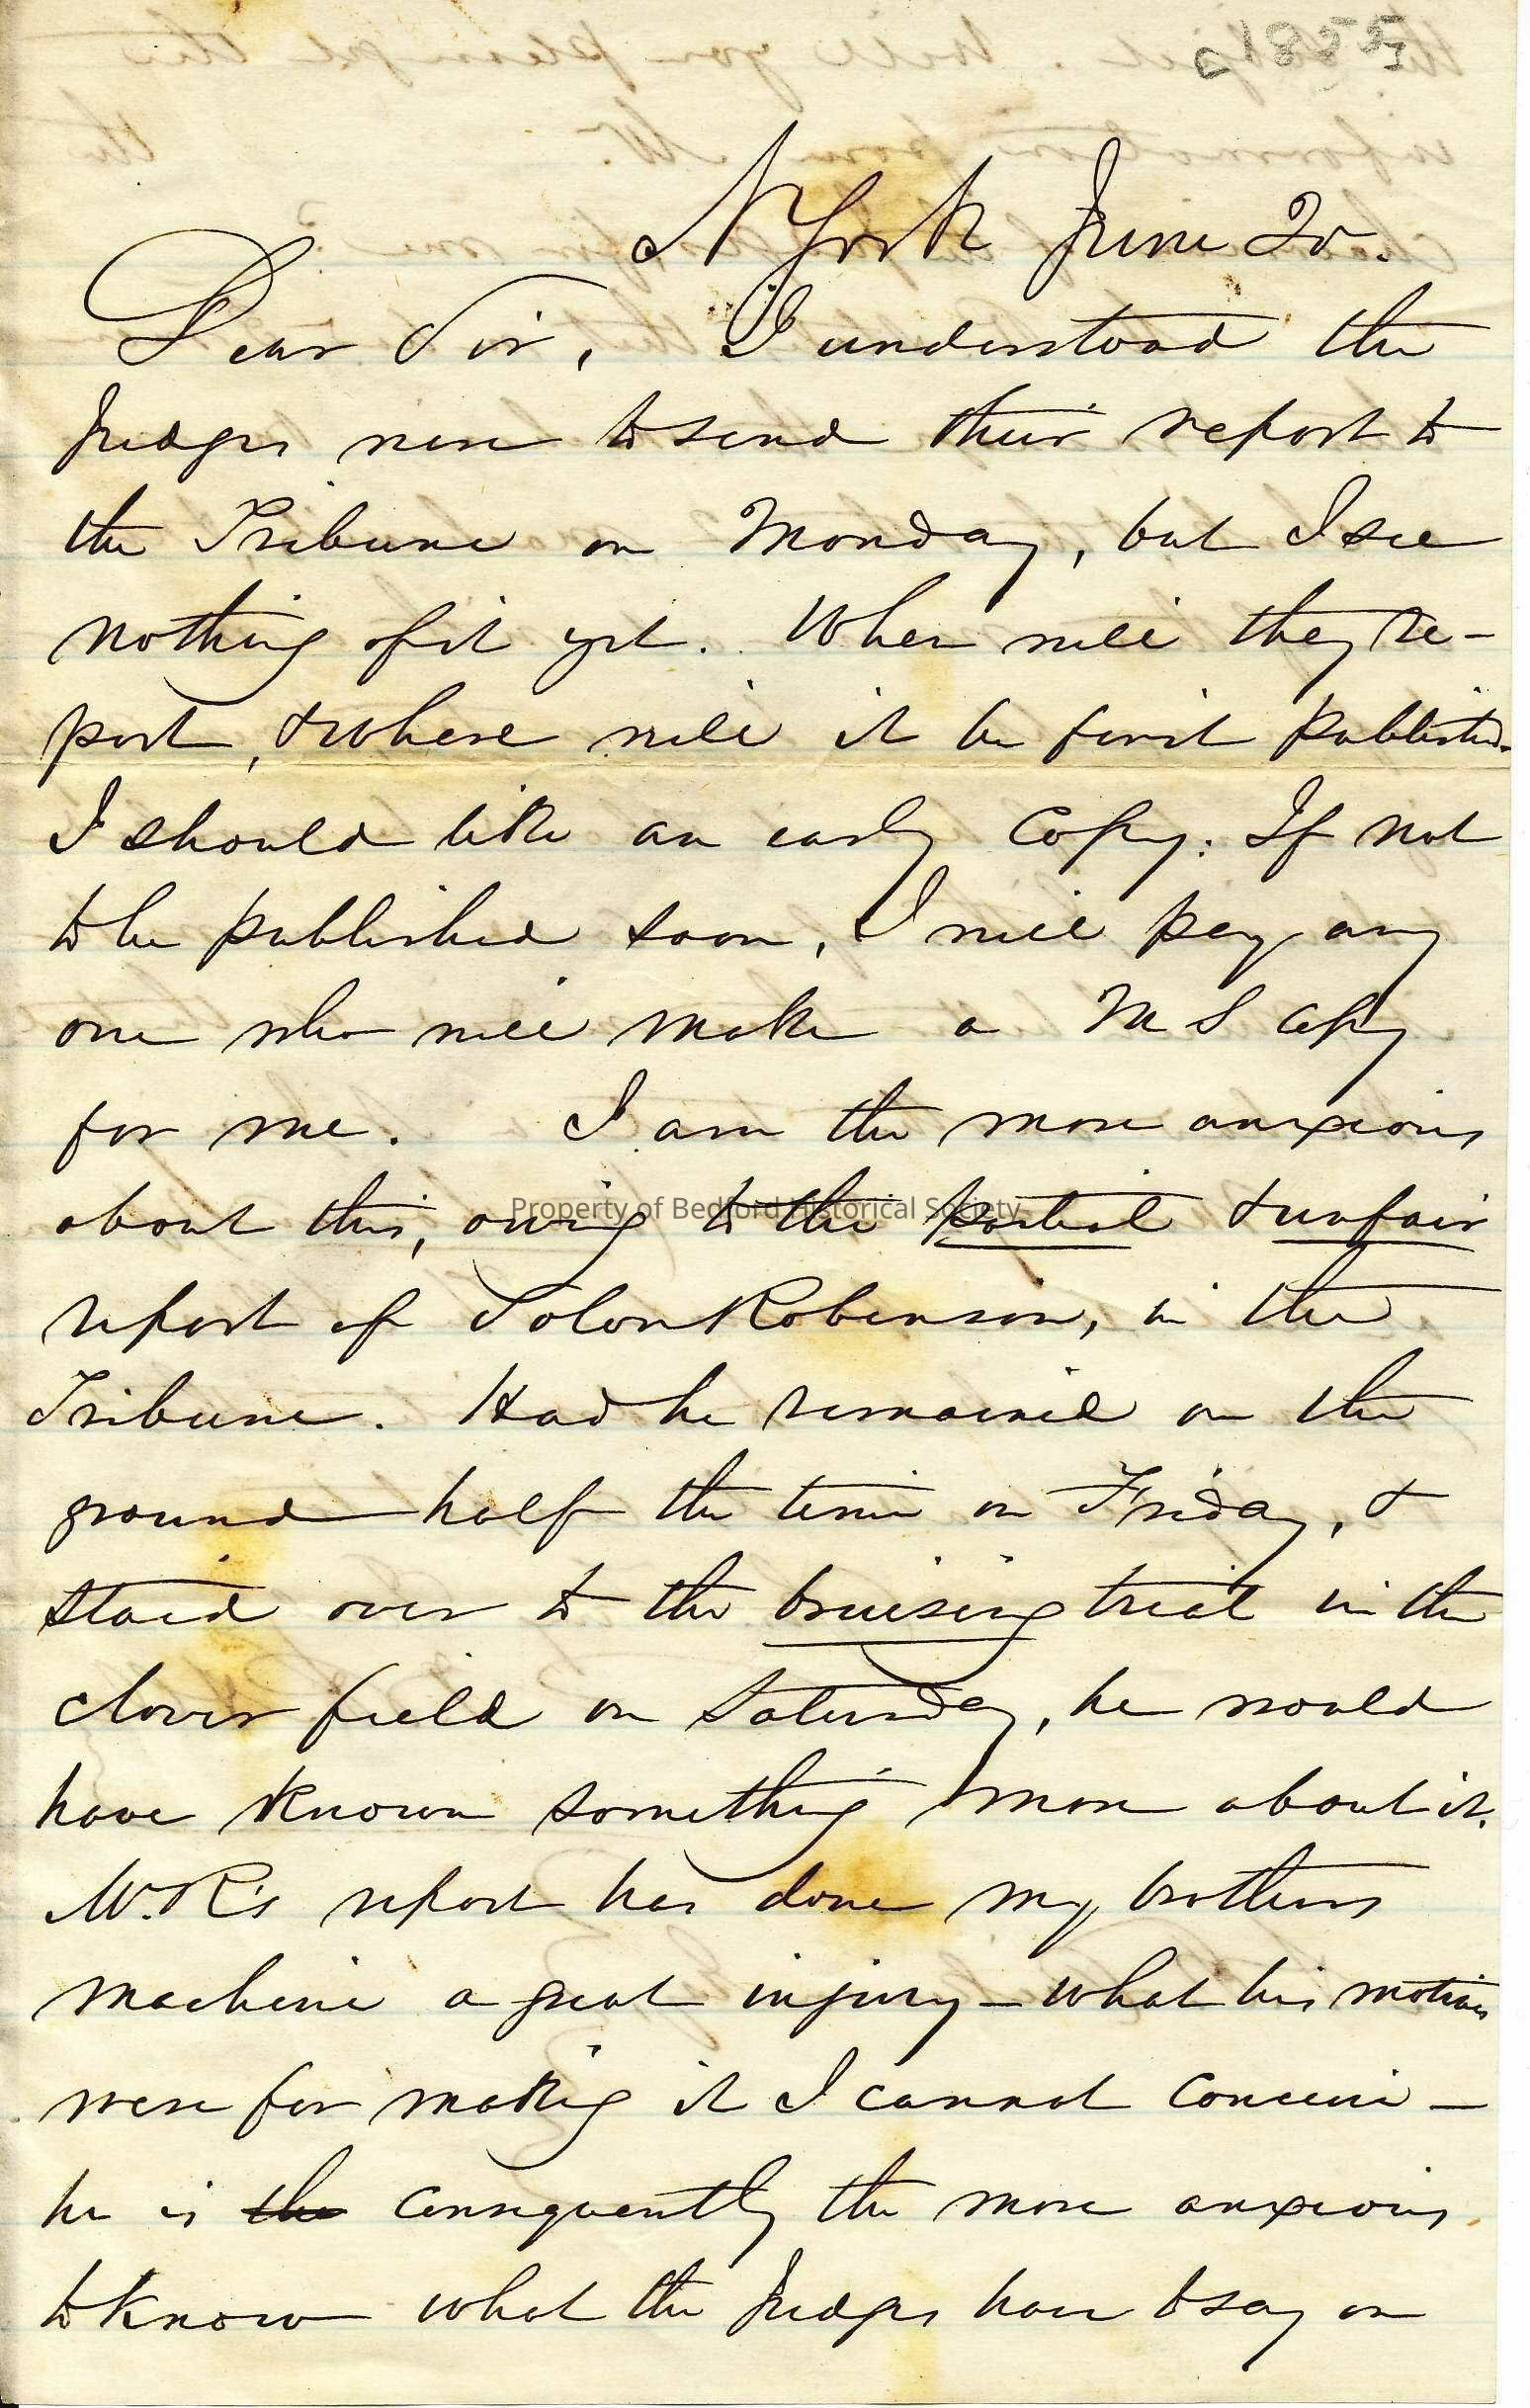 c1855
N York June 20.
Dear Sir, I understood the
Judges were to send their report to
the Tribune on Monday, but I see
nothing of it yet. When will they re-
port, & where will it be first published.
I should like an early copy. If not
to be published soon, I will pay any
one who will make a MS copy
for me. I am the more anxious
about this, owing to the partial & unfair
Property of Bedford Historical Society
report of Solon Robinson, in the
Tribune. Had he remained on the
ground half the time on Friday, &
staid over to the bruising trial in the
clover field on Saturday, he would
have known something more about it.
Mr. R's report has done my brothers
machine a great injury - what his motives
were for making it I cannot conceive -
he is the consequently the more anxious
to know what the Judges have to say on